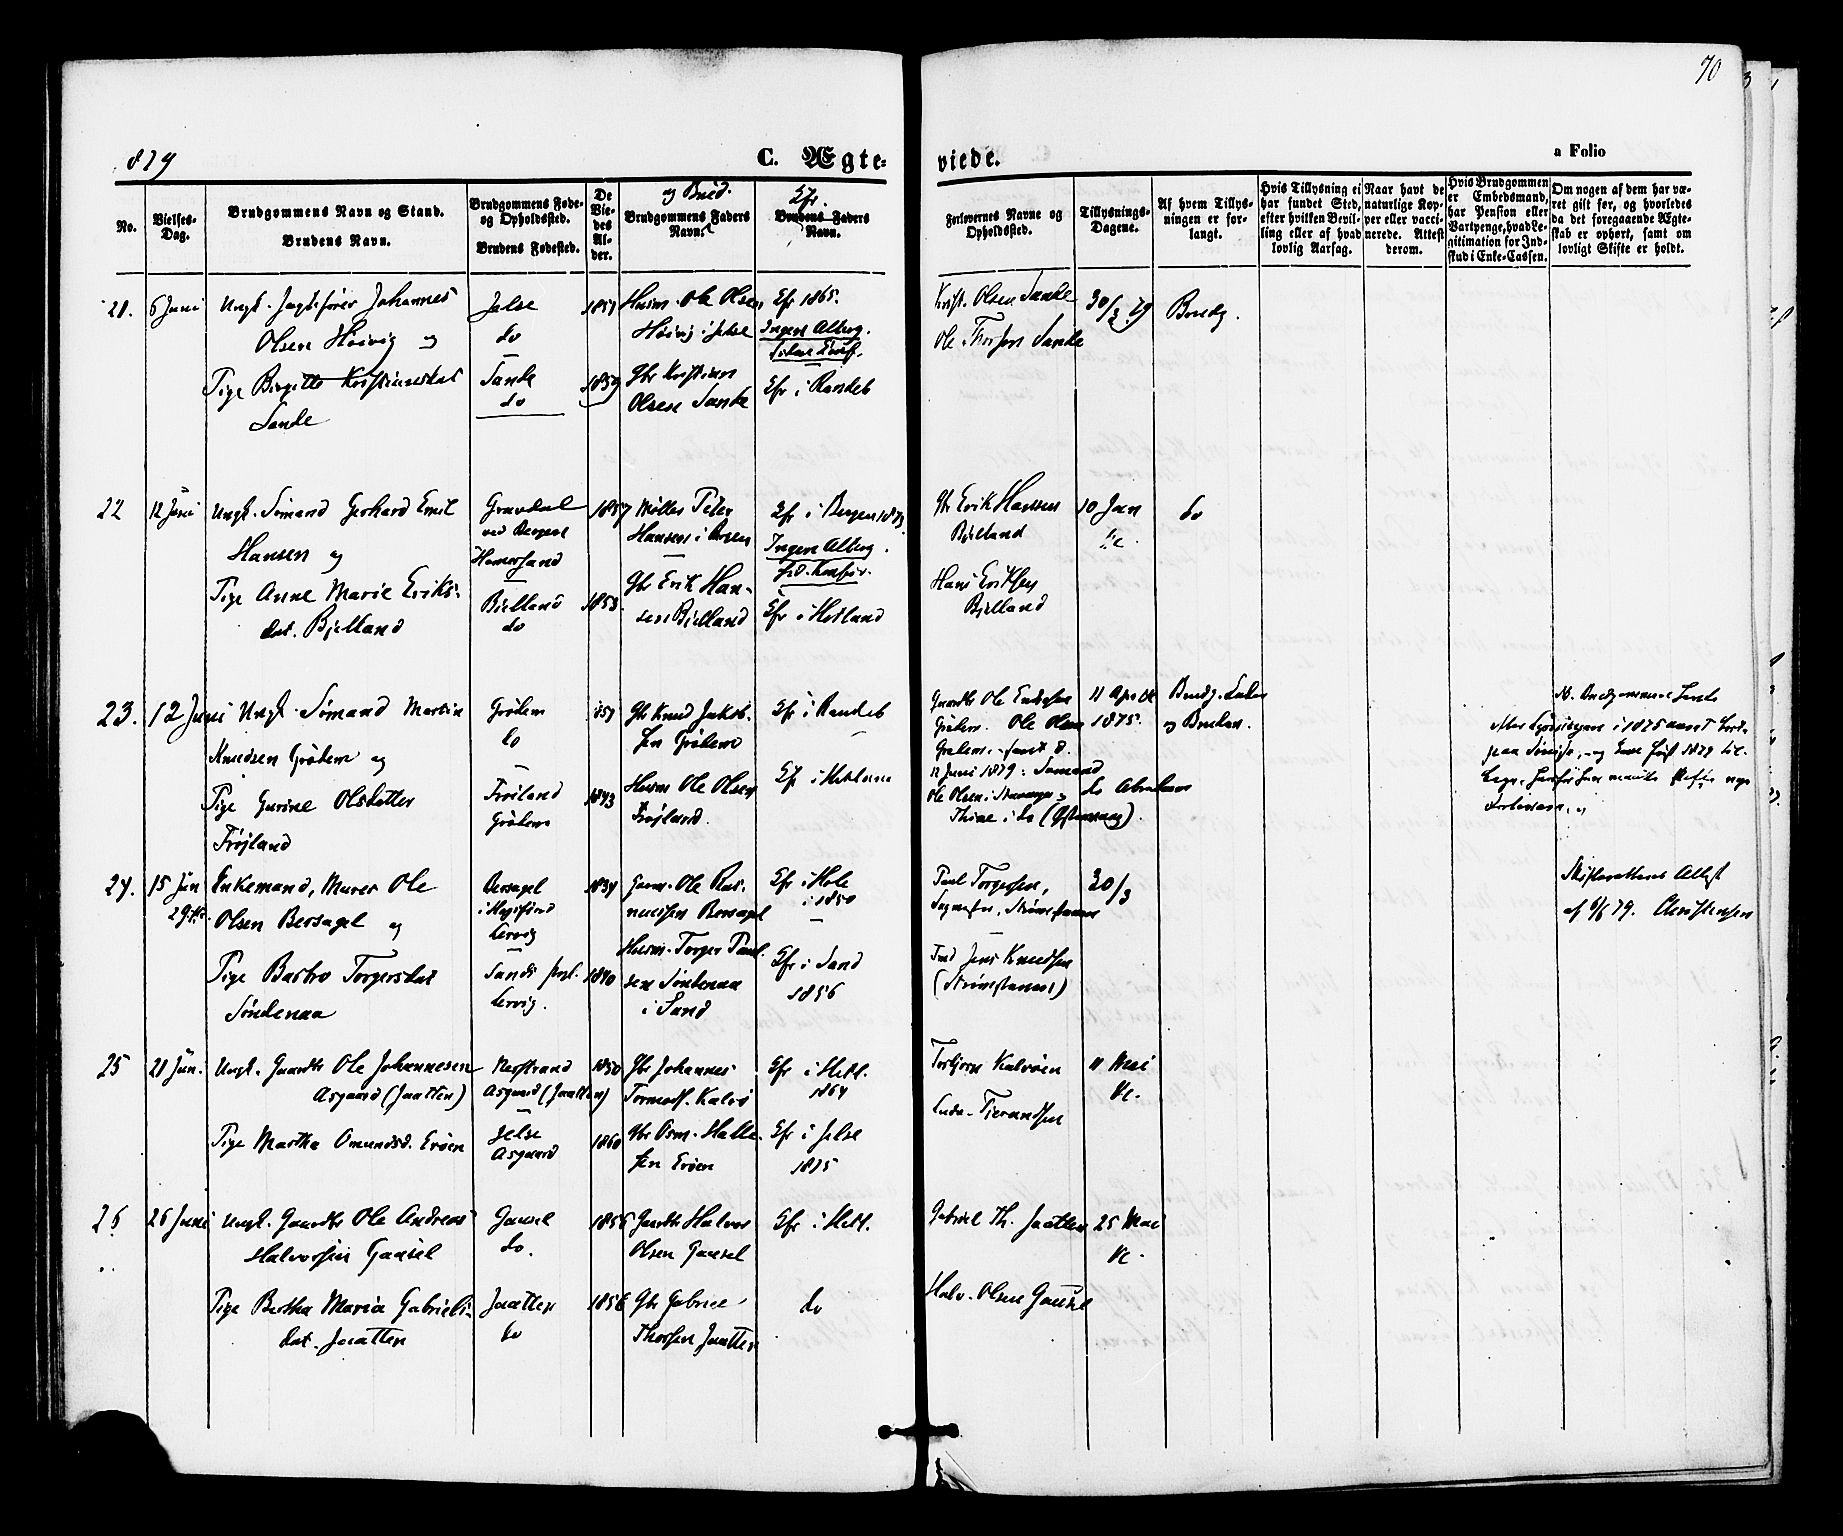 70
1879
C. Ægte-
viede.
a Folio
No.
Vielses-
Dag.
Brudgommens Navn og Stand.
Brudens Navn.
Brudgommens Føde-
og Opholdssted.
Brudens Fødested.
De
Vie-
des
Al-
der.
og Brud.
Brudgommens Faders
Navn.
Efr.
Brudens Faders
Navn.
Forlovernes Navne og
Opholdssted.
Tillysnings-
Dagene.
Af hvem Tillys-
ningen er for-
langt.
Hvis Tillysning ei
har fundet Sted,
efter hvilken Bevil-
ling eller af hvad
lovlig Aarsag.
Naar havt de
naturlige Kop-
per eller vacci-
nerede. Attest
derom.
Hvis Brudgommen
er Embedsmand,
har Pension eller
Vartpenge, hvad Le-
gitimation for Ind-
skud i Enke-Cassen.
Om nogen af dem har væ-
ret gift før, og hvorledes
da det foregaaende Ægte-
skab er ophørt, samt om
lovligt Skifte er holdt.
21. 6 Juni
Ungk. Jagtskfører Johannes
Olsen Høivig og
Tige Birgitte Kristiansdat
Sande
Jelse
do
Sande
do
1857
1859
Husm. Ole Olsen
Høivig i Jelse
Gbr Kristian
Olsen Sande
Efr 1865.
Ingen Attesg.
Efr i Randeb
Krist. Olsen Sande
Ole Thorsen Sande
30/3 79
Brudg.
22 12 Juni
Ungk. Sømand Gerhard Emil
Hansen og
Tige Anne Marie Eriks-
dat. Bjelland
Gravdal
ved Bergen
Hommersand
Bjelland
do
1857
1853
Møller Peter
Hansen i
Gbr Erik Han-
sen Bjelland
Efr i Bergen 1873
Ingen Attesg.
Efr i Hetland
Gbr Erik Hansen
Bjelland
Hans Eriksen
Bjelland
10 Jan
&c.
do
23. 12 Juni
Ungk. Sømand Martin
Knudsen Grødem og
Tige Gurine Olsdatter
Frøjland
Grødem
do
Frøiland
Grødem
1851
1843
Gbr Knud Jakob-
sen Grødem
Husm Ole Olsen
Frøjland.
Efr i Randeb
Efr i Hetland
Gaardbr Ole
Grødem. Ole Olsen
Grødem, samt d.
12 Juni 1879: Sømand
Ole Olsen i Stavanger
Thime i do
11 April
1875.
Brudg. Enken
og Bruden.
N. Brudgommen
i 1875 været
og 1879
24. 15 Jun
Enkemand, Murer Ole
Olsen Bersagel og
Tige Barbro Torgersdat
Søndenaa
Bersagel
i Høgsfjord
Lervig
Sands
Lervig.
1834
1840
Gaardm. Ole Ras-
mussen Bersagel
Husm. Torger Paul-
sen Søndenaa
i Sand
Efr i Hole
i 1850
Efr i Sand
1856
Paul Torgersen,
Strømstenen
Jens Knudsen
(Strømstenen)
30/3
Skifterettens Attest
af 6/6 79. Christensen
25 21 Jun.
Ungk. Gaardbr Ole Johannesen
Asgaard (Jaatten)
Tige Martha Omundsd. Erøen
Nerstrand
Asgaard (Jaatten)
Jelse
Asgaard
1850
1860
Gbr Johannes
Tormods. Kalvø
Gbr Osm. Halle-
sen Erøen
Efr i Hetl.
1864
Efr i Jelse
1875
Torbjørn Kalvøen
Endr. Tjerandsen
11 Mai
&c.
26 26 Juni
Ungk. Gaardbr Ole Andreas
Halvorsen Gausel
Tige Bertha Maria Gabriels-
dat. Jaatten
Gausel
do.
Jaatten
do
1856
1856
Gaardbr Halvor
Olsen Gausel
Gbr Gabriel
Thorsen Jaatten
Efr i Hetl.
do
Gabriel Th. Jaatten
Halv. Olsen Gausel
25 Mai
&c.